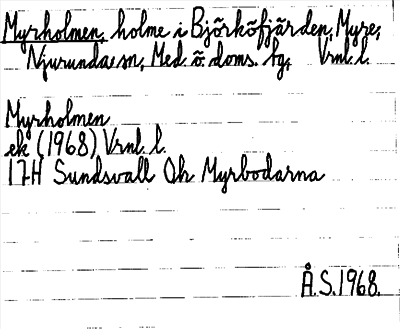 Myrholmen, holme i Björköfjärden, Myre,
Njurunda sn, Med. ö. doms. bg. Vrnl. l.
Myrholmen
ek (1968) Vrnl. l.
17H Sundsvall Oh Myrbodarna
Å.S. 1968.